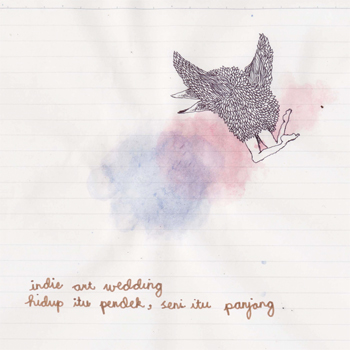 indie art wedding
hidup itu pendek, seni itu panjang.